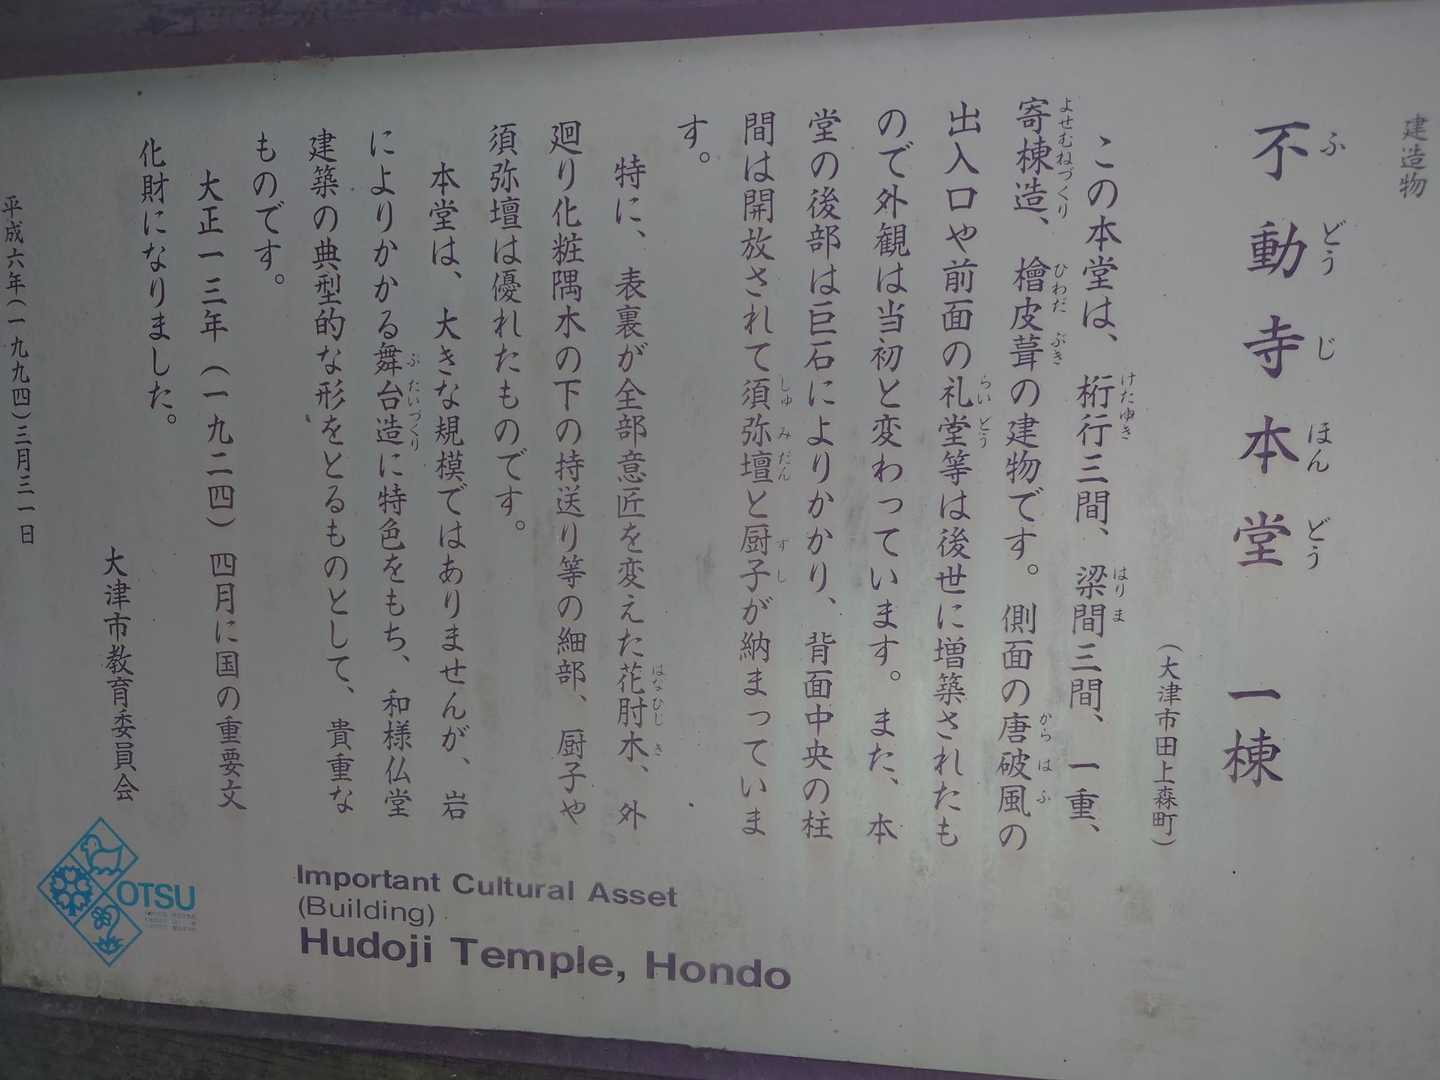 建造物
不動寺本堂 一棟
ふ どう じ ほん どう
(大津市田上森町)
この本堂は、桁行三間、梁間三間、一重、
けたゆき はり ま
寄棟造、檜皮葺の建物です。側面の唐破風の
よせむねづくり ひわだ ぶき から は ふ
出入口や前面の礼堂等は後世に増築されたも
らい どう
ので外観は当初と変わっています。また、本
堂の後部は巨石によりかかり、背面中央の柱
間は開放されて須弥壇と厨子が納まっていま
しゅ みだん ず し
す。
特に、表裏が全部意匠を変えた花肘木、外
はなひじ き
廻り化粧隅木の下の持送り等の細部、厨子や
須弥壇は優れたものです。
本堂は、大きな規模ではありませんが、岩
によりかかる舞台造に特色をもち、和様仏堂
ぶ たいづくり
建築の典型的な形をとるものとして、貴重な
ものです。
大正一三年(一九二四)四月に国の重要文
化財になりました。
大津市教育委員会
平成六年(一九九四)三月三一日
Important Cultural Asset
(Building)
Hudoji Temple, Hondo
OTSU